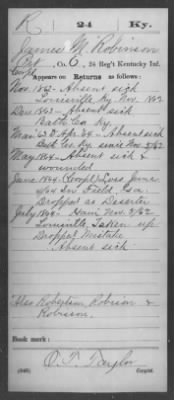 R 24 Ky.
James M. Robinson
Pvt, Co. C, 24 Reg't Kentucky Inf.
Appears on Returns as follows:
Nov. 1862 - Absent sick
Louisville Ky Nov. 1862
Dec 1862 - Absent sick
Bath Co. Ky.
Absent sick
Bath Co. Ky. since Nov 7/62
May 1864 - Absent sick &
wounded
June 1864 - Loss June
In Field, Ga
Dropped as Deserter
July 1864 - Gain Nov. 7/62
Louisville, Taken up
Dropped Mistake
Absent sick
Also Robertson, Robison &
Robisson.
Book mark:
O. T. Taylor
(546) Copyist.